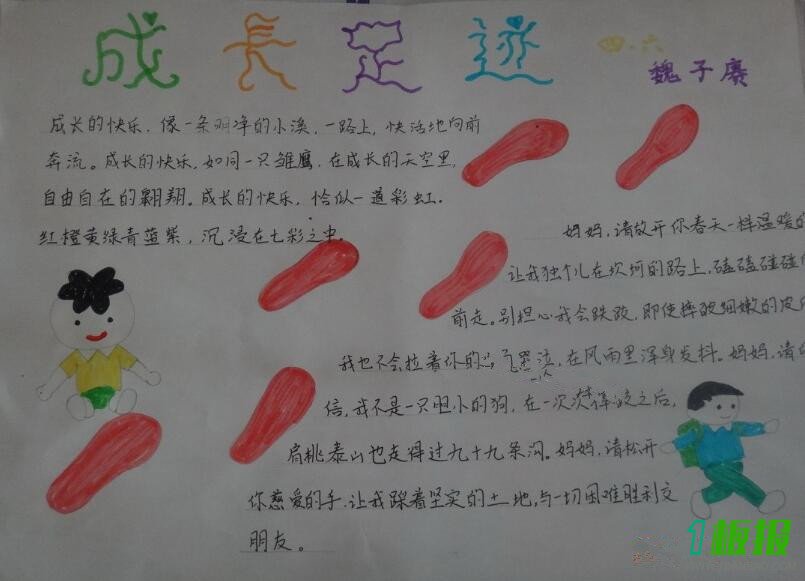 成长足迹
四.六
魏子赓
成长的快乐，像一条明净的小溪，一路上，快活地向前
奔流。成长的快乐，如同一只雏鹰，在成长的天空里，
自由自在的翱翔。成长的快乐，恰似一道彩虹，
红橙黄绿青蓝紫，沉浸在七彩之中。
妈妈，请放开你春天一样温暖的
让我独个儿在坎坷的路上，磕磕碰碰
前走。别担心我会跌跤，即使摔破细嫩的皮
我也不会拉着你的 哭泣，在风雨里浑身发抖。妈妈，请
信，我不是一只胆小的狗，在一次次摔跤之后，
肩挑泰山也走得过九十九条沟。妈妈，请松开
你慈爱的手，让我踩着坚实的土地，与一切困难胜利交
朋友。
1板报